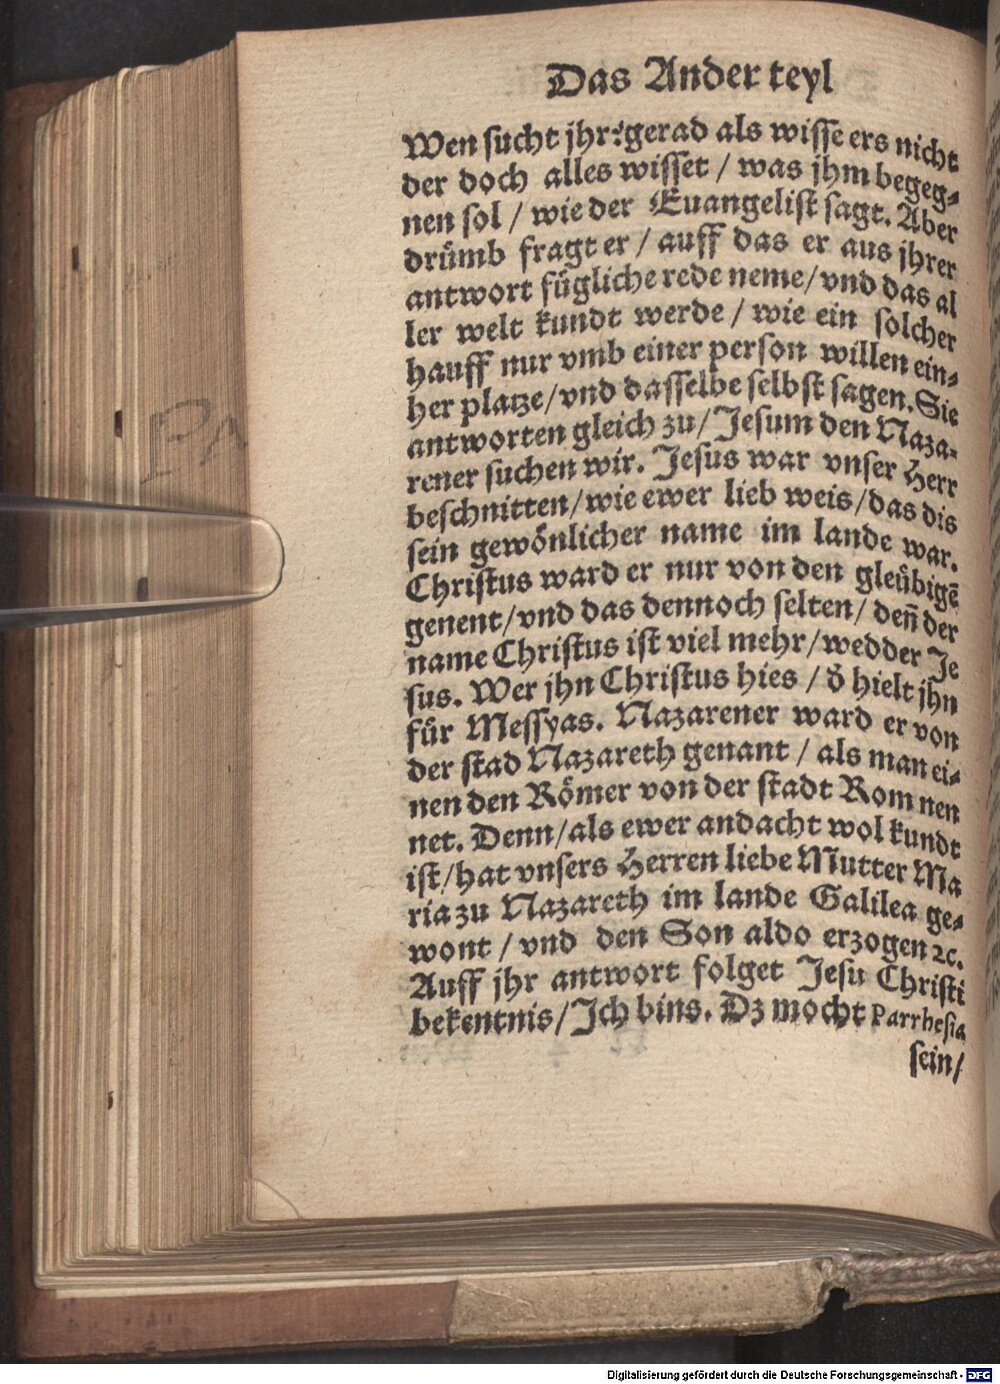 Das Ander teyl
Wen sucht jhr?gerad als wisse ers nicht
der doch alles wisset / was jhm begeg-
nen sol / wie der Euangelist sagt. Aber
drümb fragt er / auff das er aus jhrer
antwort fügliche rede neme/ vnd das al
ler welt kundt werde / wie ein solcher
hauff nur vmb einer person willen ein-
her platze/vnd dasselbe selbst sagen. Sie
antworten gleich zu/ Jesum den Naza-
rener suchen wir. Jesus war vnser Herr
beschnitten/wie ewer lieb weis/das dis
sein gewönlicher name im lande war.
Christus ward er nur von den gleübigē
genent/vnd das dennoch selten/ deñ der
name Christus ist viel mehr/wedder Je
sus. Wer jhn Christus hies / d̕ hielt jhn
für Messyas. Nazarener ward er von
der stad Nazareth genant / als man ei-
nen den Römer von der stadt Rom nen
net. Denn/als ewer andacht wol kundt
ist/hat vnsers Herren liebe Mutter Ma
ria zu Nazareth im lande Galilea ge-
wont / vnd den Son aldo erzogen ꝛc.
Auff jhr antwort folget Jesu Christi
bekentnis/Ich bins. Dz mocht Parrhesia
sein/
Digitalisierung gefördert durch die Deutsche Forschungsgemeinschaft - DFG